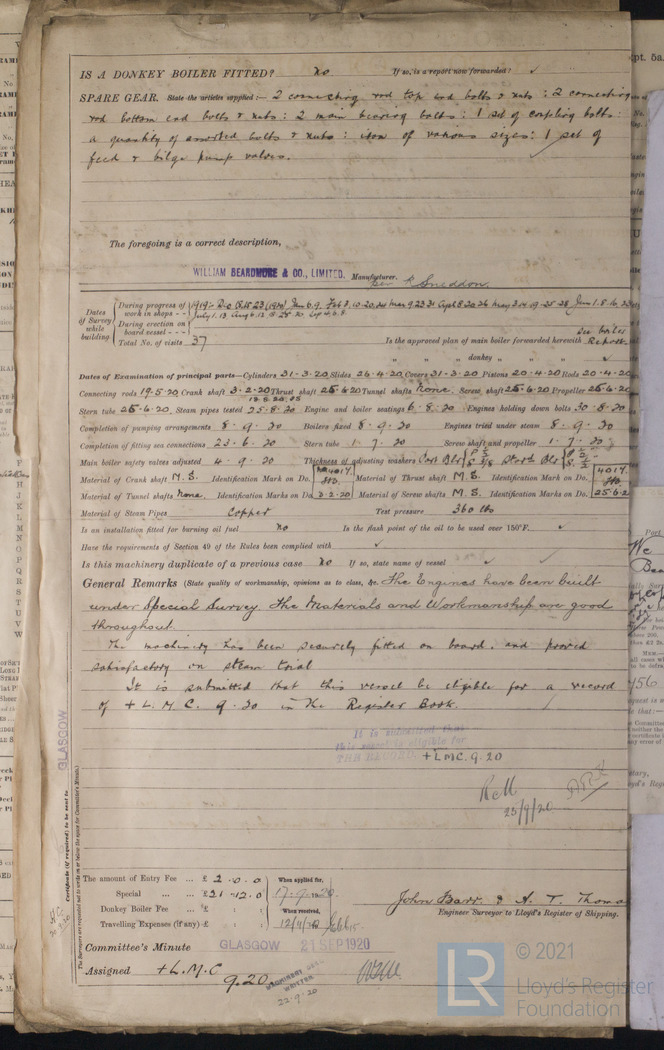 IS A DONKEY BOILER FITTED? No If so, is a report now forwarded? ✓
SPARE GEAR. State the articles supplied:— 2 connecting rod top end bolts & nuts : 2 connecting
rod bottom end bolts & nuts : 2 main bearing bolts : 1 set of coupling bolts :
a quantity of assorted bolts & nuts : iron of various sizes : 1 set of
feed & bilge pump valves.
The foregoing is a correct description,
WILLIAM BEARDMORE & CO., LIMITED. Manufacturer.
per R Sneddon.
Dates of Survey while building
During progress of work in shops - -
During erection on board vessel - - -
Total No. of visits 37
Is the approved plan of main boiler forwarded herewith See boiler Report.
" " " donkey " " " ✓
Dates of Examination of principal parts—Cylinders 31-3-20 Slides 26-4-20 Covers 31-3-20 Pistons 20-4-20 Rods 20-4-20
Connecting rods 19.5.20 Crank shaft 3-2-20 Thrust shaft 25-6-20 Tunnel shafts None. Screw shaft 25-6-20 Propeller 25-6-20
Stern tube 25-6-20. Steam pipes tested 25-8-20 Engine and boiler seatings 6-8-20 Engines holding down bolts 30-8-20
Completion of pumping arrangements 8-9-20 Boilers fixed 8-9-20 Engines tried under steam 8-9-20
Completion of fitting sea connections 23-6-20 Stern tube 1-7-20 Screw shaft and propeller 1-7-20
Main boiler safety valves adjusted 4-9-20 Thickness of adjusting washers
Material of Crank shaft M.S. Identification Mark on Do. 4017 Material of Thrust shaft M.S. Identification Mark on Do. 4017
Material of Tunnel shafts None. Identification Marks on Do. 3-2-20 Material of Screw shafts M.S. Identification Marks on Do. 25-6-2
Material of Steam Pipes Copper Test pressure 360 lbs
Is an installation fitted for burning oil fuel No Is the flash point of the oil to be used over 150°F. ✓
Have the requirements of Section 49 of the Rules been complied with ✓
Is this machinery duplicate of a previous case No If so, state name of vessel ✓
General Remarks (State quality of workmanship, opinions as to class, &c. The Engines have been built
under Special Survey The Materials and Workmanship are good
throughout.
The machinery has been securely fitted on board, and proved
satisfactory on steam trial
It is submitted that this vessel be eligible for a record
of + L.M.C. 9.20 in the Register Book.
It is submitted that
this vessel is eligible for
THE RECORD. + LMC. 9.20
25/9/20
GLASGOW
Certificate (if required) to be sent to
(The Surveyors are requested not to write on or below the space for Committee's Minute.)
The amount of Entry Fee ... £ 2-0-0 When applied for,
Special ... ... £ 21-12-0 17-9-1920.
Donkey Boiler Fee ... £ : : When received,
Travelling Expenses (if any) £ : :
John Barr. & A. T. Thoma
Engineer Surveyor to Lloyd's Register of Shipping.
Committee's Minute GLASGOW 21 SEP 1920
Assigned + L.M.C
9.20
MACHINERY CERT.
WRITTEN
22.9.20
© 2021
LR Lloyd's Register
Foundation